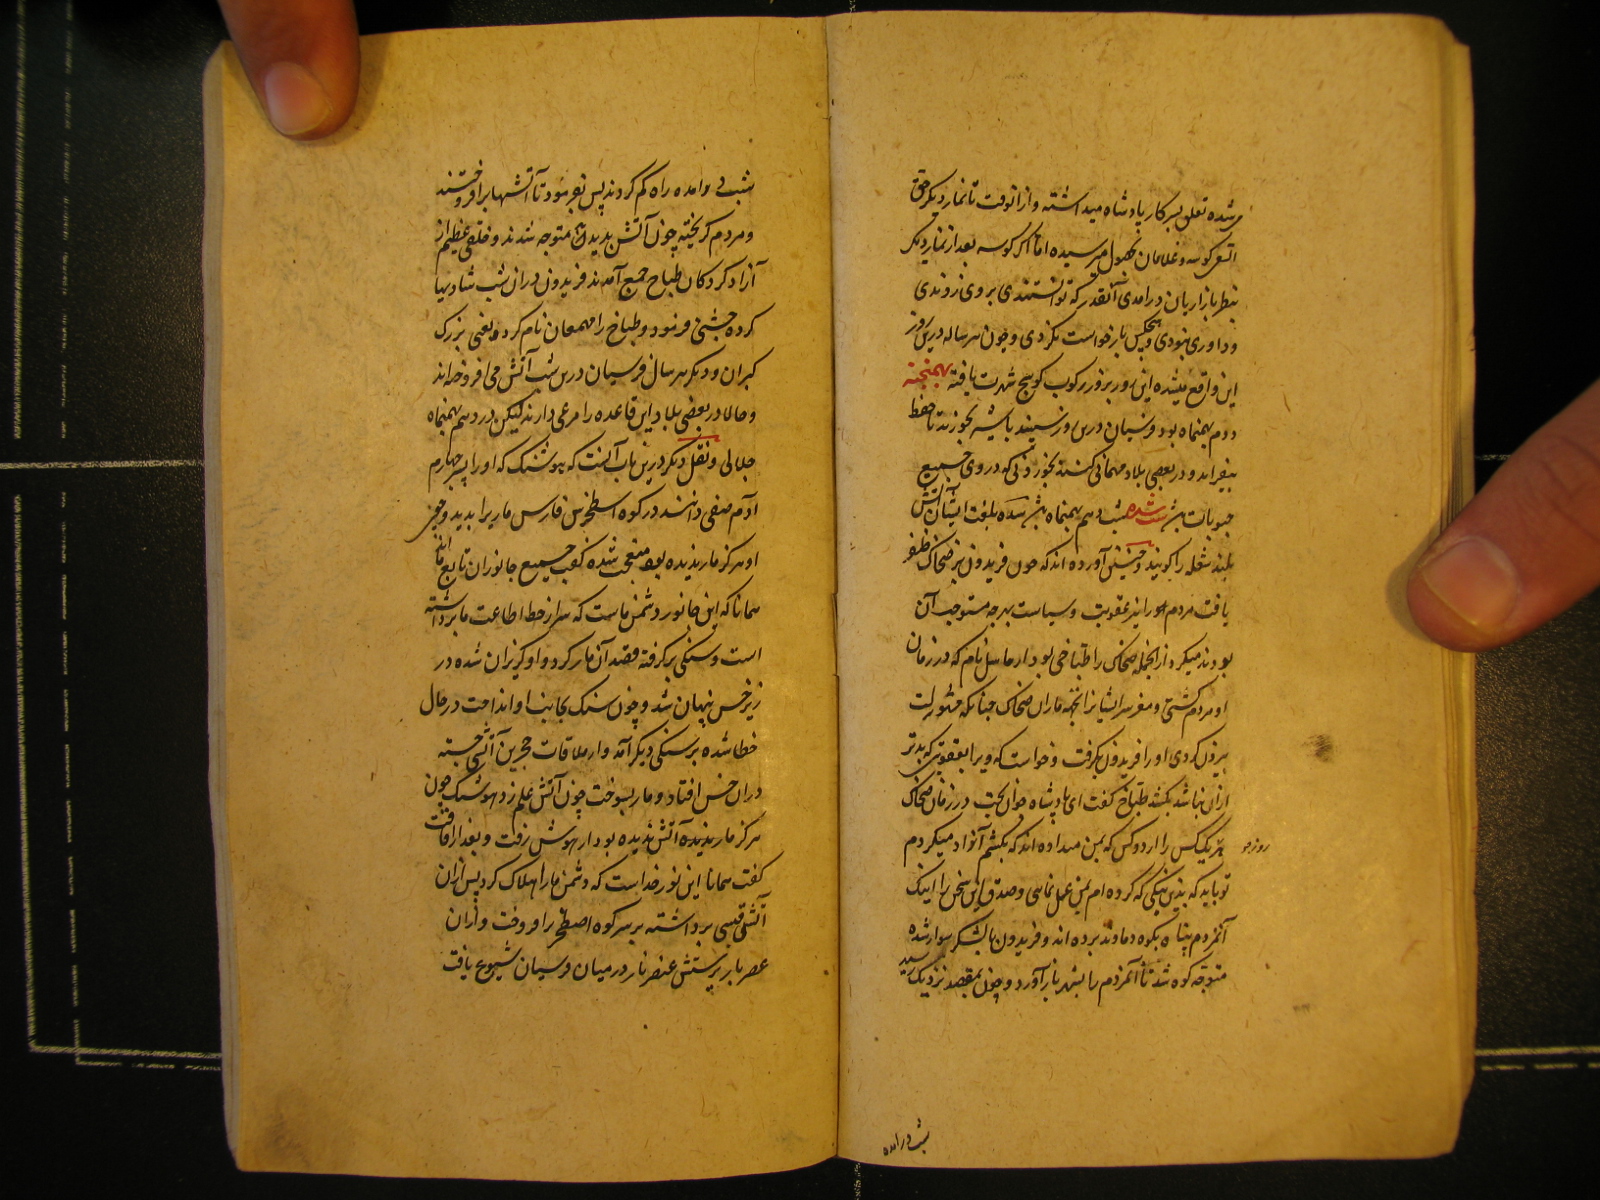 می‌شده تعلق بسرکار پادشاه میداشته و از انوقت تا نماز دیگر حق
کوسه و غلامان بحصول میرسیده اما اگر کوسه بعد از نماز دیگر
بنظر بازاریان درامدی آنقدر که توانستندی بر وی زدندی
و داوری نبودی و هیچکس بازخواست نکردی و چون هر ساله درین روز
این واقع میشده این روز بروز رکوب کوسج شهرت یافته بهمنجنه
دوم بهمنماه بود و فرسیان درین روز سپند با شیر بخورند تا حفظ
بیفزاید و در بعضی بلاد مهمانی کنند بخوردنی که در وی جمیع
حبوبات شب سده شب دهم بهمنماه سده بلغت ایشان آتش
بلند شعله را کویند و چنین آورده اند که چون فریدون بر ضحاک ظفر
یافت مردم او را بر عقوبت و سیاست بهرچه مستوجب آن
بودند میکرد ازانجمله ضحاک را طباخی بود ارماییل نام که در زمان
او مردم کشتی و مغز سر ایشانرا بجهة ماران ضحاک چنانکه مشهور است
بیرون کردی او را فریدون بگرفت و خواست که ویرا بعقوبتی که بدتر
ازان نباشد بکشد طباخ گفت ای پادشاه جوان بخت در زمان ضحاک
هر یک کس را از دو کس که بمن میداده اند که بکشم آزاد میکردم
روز مو
تو باید که بدین نیکی که کرده ام بمن عمل نمایی و صدق این سخن را اینک
آنمردم پناه بکوه دماوند برده اند و فریدون با لشکر سوار شده
متوجه کوه شد تا آنمردم را بشهر باز آورد و چون بمقصد نزدیک رسید
شب درامده
شب درامده راه کم کردند پس بفرمود تا آتشها برافروختند
و مردم گریخته چون آتش بدیدند متوجه شدند و خلقی عظیم از
آزاد کردکان طباخ جمع آمدند فریدون دران شب شادیها
کرده جشنی فرمود و طباخ را مهمغان نام کرد یعنی بزرگ
کبران و دیگر هر سال فرسیان درین شب آتش می افروخته اند
و حالا در بعضی بلاد این قاعده را مرعی دارند لیکن در دهم بهمنماه
جلالی و نقل دیگر درین باب آنست که هوشنک که او را پسر چهارم
آدم صفی دانند در کوه اصطخر من فارس ماریرا بدید و چون
او هرگز مار ندیده بود متعجب شده گفت جمیع جانوران تابع ما اند
همانا که این جانور دشمن ماست که سر از خط اطاعت ما برداشته
است و سنکی برگرفته قصد آن مار کرد و او گریزان شده در
زیر خس پنهان شد و چون سنک بجانب او انداخت در حال
خطا شده بر سنکی دیگر آمد و از ملاقات حجرین آتشی جسته
دران خس افتاد و مار بسوخت چون آتش علم زد هوشنک چون
هرگز مار ندیده آتش ندیده بود از هوش رفت و بعد از افاقت
گفت همانا این نور خداست که دشمن ما را هلاک کرد پس ازان
آتش قبسی برداشته بر سر کوه اصطخر را فروخت و ازان
عصر باز پرستش عنصر نار در میان فرسیان شیوع یافت